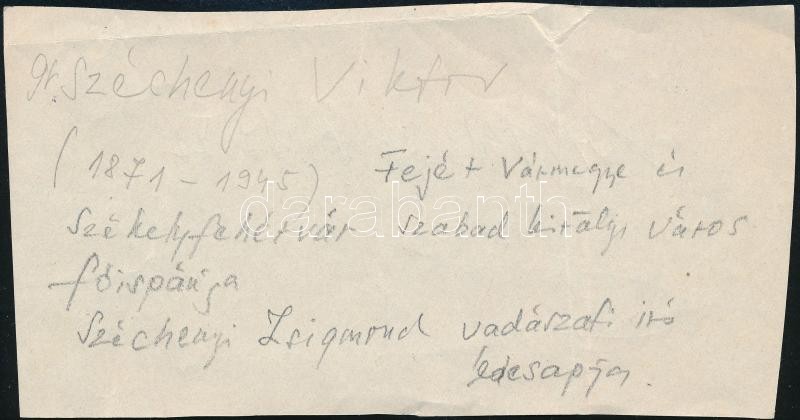 gr. Széchenyi Viktor
(1871 - 1945) Fejér Vármegye és
Székelyfehérvár szabad királyi város
főispánja
Széchenyi Zsigmond vadászati író
édesapja.
darabanth